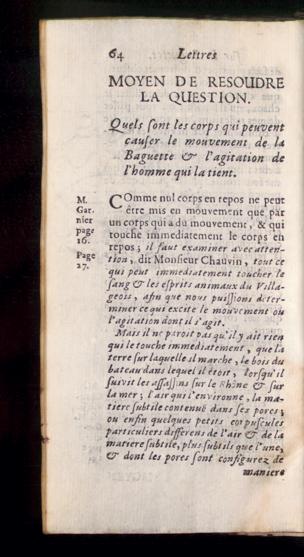 64 Lettres
MOYEN DE RESOUDRE
LA QUESTION.
Quels ſont les corps qui peuvent
cauſer le mouvement de la
Baguette & l'agitation de
l'homme qui la tient.
M.
Gar-
nier
page
16.
Page
27.
COmme nul corps en repos ne peut
être mis en mouvement que par
un corps qui a du mouvement, & qui
touche immediatement le corps en
repos; il faut examiner avec atten-
tion, dit Monſieur Chauvin, tout ce
qui peut immediatement toucher le
ſang & les eſprits animaux du Villa-
geois, afin que nous puiſſions deter-
miner ce qui excite le mouvement ou
l'agitation dont il s'agit.
Mais il ne paroît pas qu'il y ait rien
qui le touche immediatement, que la
terre ſur laquelle il marche, le bois du
bateau dans lequel il étoit, lorſqu'il
ſuivit les aſſaſſins ſur le Rhône & ſur
la mer; l'air qui l'environne, la ma-
tiere ſubtile contenuë dans ſes pores;
ou enfin quelques petits corpuſcules
particuliers differens de l'air & de la
matiere ſubtile, plus ſubtils que l'une,
& dont les pores ſont configurez de
maniere